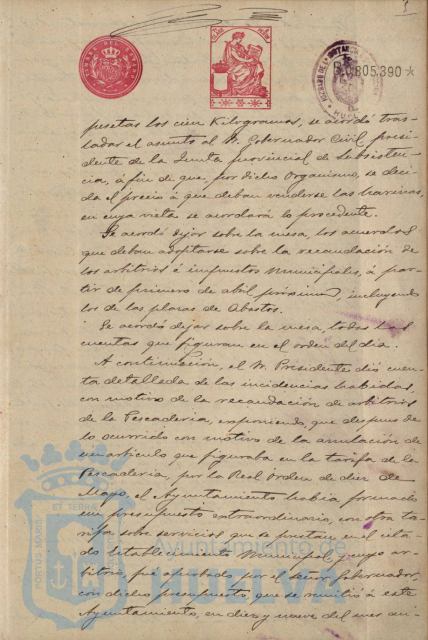 B.0.805.390 *
pesetas los cien Kilogramos, se acordó tras-
ladar el asunto al Sr. Gobernador Civil presi-
dente de la Junta provincial de subsisten-
cia, á fin de que, por dicho Organismo, se deci-
da el precio á que deban venderse las harinas,
en cuya vista se acordará lo procedente.
Se acordó dejar sobre la mesa, los acuerdos
que deban adoptarse sobre la recaudación de
los arbitrios é impuestos Municipales, á par-
tir de primero de abril próximo, incluyendo
los de las plazas de Abastos.
Se acordó dejar sobre la mesa, todas las
cuentas que figuran en el orden del dia.
A continuación, el Sr. Presidente dió cuen-
ta detallada de las incidencias habidas,
con motivo de la recaudación de arbitrios
de la Pescaderia, exponiendo, que despues de
lo ocurrido con motivo de la anulación de
un articulo que figuraba en la tarifa de la
Pescaderia, por la Real Orden de diez de
Mayo, el Ayuntamiento habia formado
un presupuesto extraordinario, con otra ta-
rifa sobre servicios que se prestan en el cita-
do establecimiento Municipal, y cuyo ar-
bitrio, fué aprobado, por el señor Gobernador,
con dicho presupuesto, que se remitió á este
Ayuntamiento, en diez y nueve del mes
Ayuntamiento de
HUELVA
PORTUS MARIS ET TERRAE